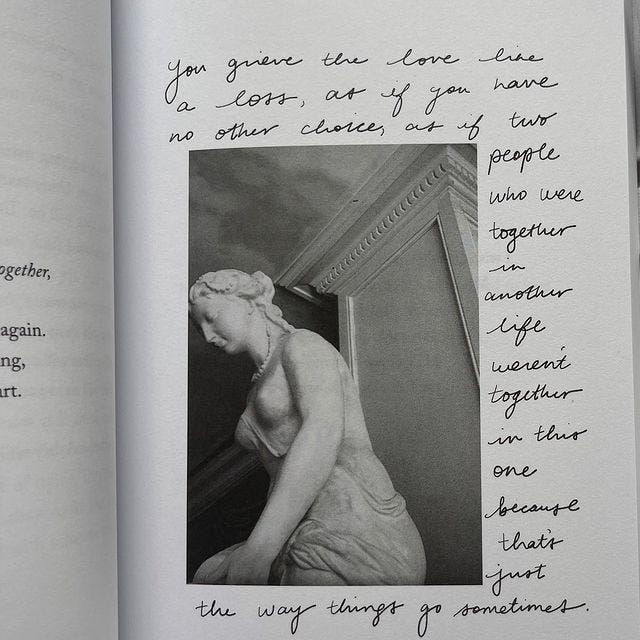 ogether,
again.
ng,
rt.
You grieve the love like
a loss, as if you have
no other choice, as if two
people
who were
together
in
another
life
weren't
together
in this
one
because
that's
just
the way things go sometimes.